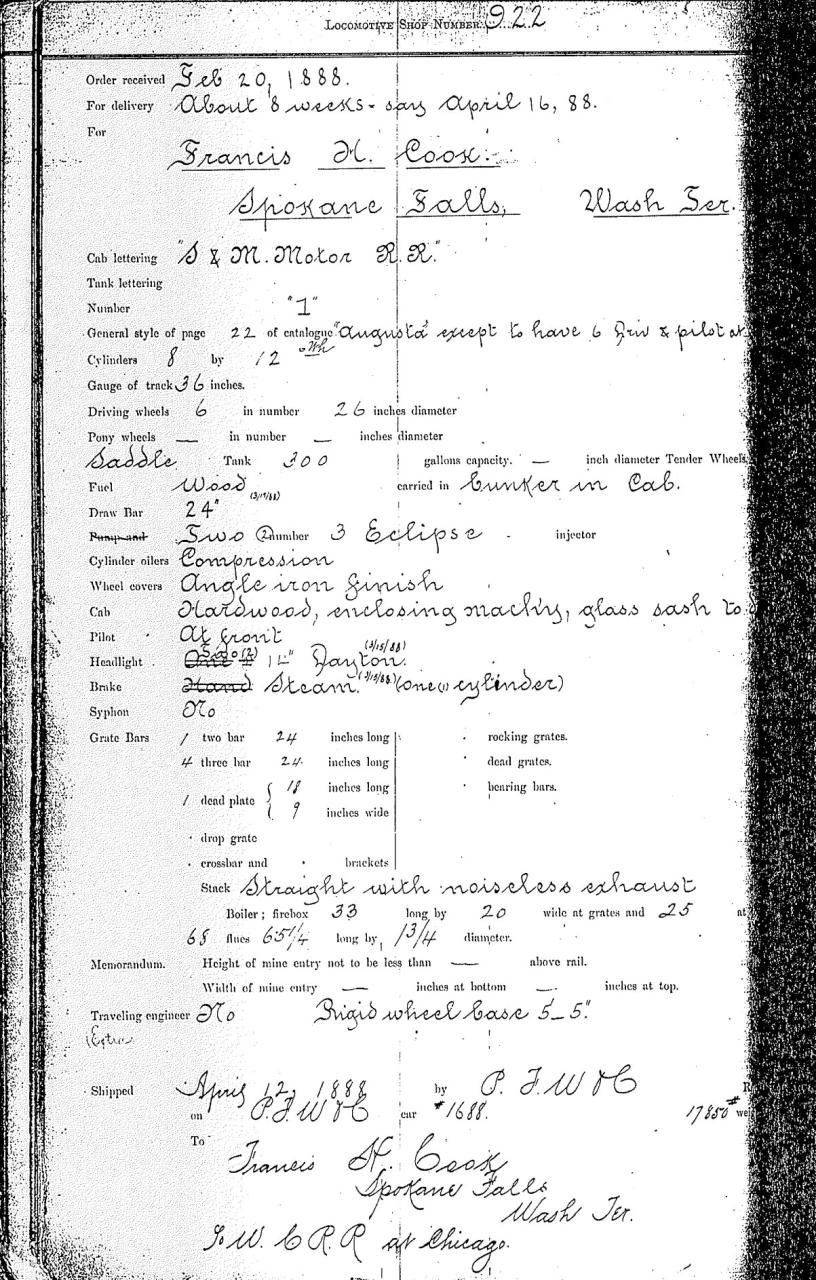 LOCOMOTIVE SHOP NUMBER 922
Order received Feb 20, 1888.
For delivery About 8 weeks - say April 16, 88.
For
Francis H. Cook.
Spokane Falls, Wash Ter.
Cab lettering "S & M. Motor R.R."
Tank lettering
Number "1"
General style of page 22 of catalogue "Augusta" except to have 6 Driv & pilot at
Cylinders 8 by 12
Gauge of track 36 inches.
Driving wheels 6 in number 26 inches diameter
Pony wheels — in number — inches diameter
Saddle Tank 300 gallons capacity. — inch diameter Tender Wheels
Fuel Wood carried in bunker in Cab.
Draw Bar 24"
Pump and Two (2) number 3 Eclipse injector
Cylinder oilers Compression
Wheel covers Angle iron finish
Cab Hardwood, enclosing mach'ry, glass sash to
Pilot At front
Headlight Two (2) 14" Dayton. (3/15/88)
Brake Hand Steam. (3/15/88) (one (1) cylinder)
Syphon No
Grate Bars 1 two bar 24 inches long rocking grates.
4 three bar 24 inches long dead grates.
1 dead plate { 18 inches long bearing bars.
9 inches wide
drop grate
crossbar and brackets
Stack Straight with noiseless exhaust
Boiler; firebox 33 long by 20 wide at grates and 25 at
68 flues 65 1/4 long by 1 3/4 diameter.
Memorandum. Height of mine entry not to be less than — above rail.
Width of mine entry — inches at bottom —. inches at top.
Traveling engineer No Rigid wheel base 5-5".
(Extra
Shipped April 12, 1888 by P. F. W & C R
on P. F. W & C car #1688. 17850# we
To
Francis H. Cook
Spokane Falls
Wash Ter.
To W. C R. R at Chicago.